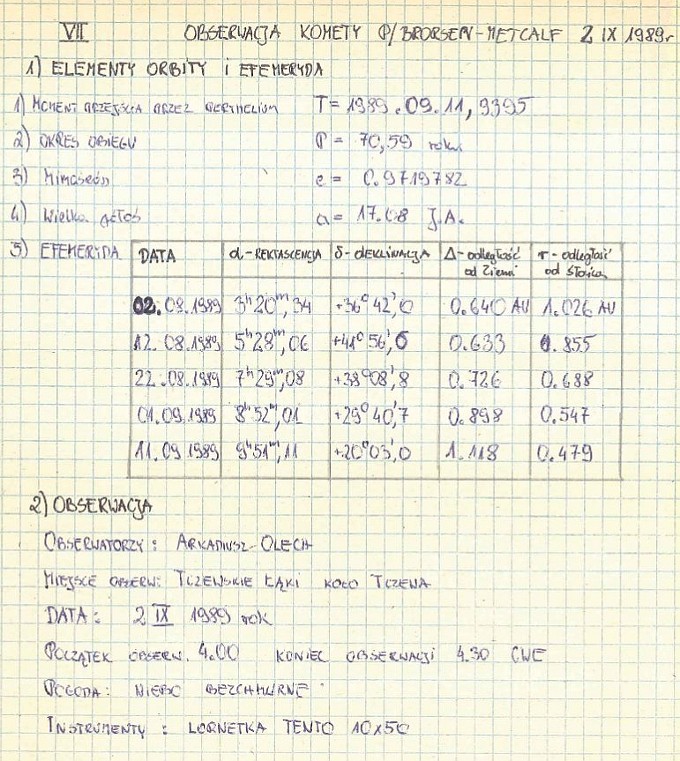 VII OBSERWACJA KOMETY P/BRORSEN-METCALF 2 IX 1989r
1) ELEMENTY ORBITY i EFEMERYDA
1) MOMENT PRZEJŚCIA PRZEZ PERYHELIUM T = 1989.09.11,9395
2) OKRES OBIEGU P = 70,59 roku
3) Mimośród e = 0.9719782
4) Wielka półoś a = 17.08 J.A.
5) EFEMERYDA DATA α-REKTASCENCJA δ-DEKLINACJA Δ-odległość od Ziemi r-odległość od Słońca
02.08.1989 3h20m,34 +36°42',0 0.640 AU 1.026 AU
12.08.1989 5h28m,06 +41°56',6 0.633 0.855
22.08.1989 7h29m,08 +38°08',8 0.726 0.688
01.09.1989 8h52m,01 +29°40',7 0.898 0.547
11.09.1989 9h51m,11 +20°03',0 1.118 0.479
2) OBSERWACJA
OBSERWATORZY: ARKADIUSZ OLECH
MIEJSCE OBSERW: TCZEWSKIE ŁĄKI KOŁO TCZEWA
DATA: 2 IX 1989 rok
POCZĄTEK OBSERW. 4.00 KONIEC OBSERWACJI 4.30 CWE
POGODA: NIEBO BEZCHMURNE
INSTRUMENTY: LORNETKA TENTO 10x50